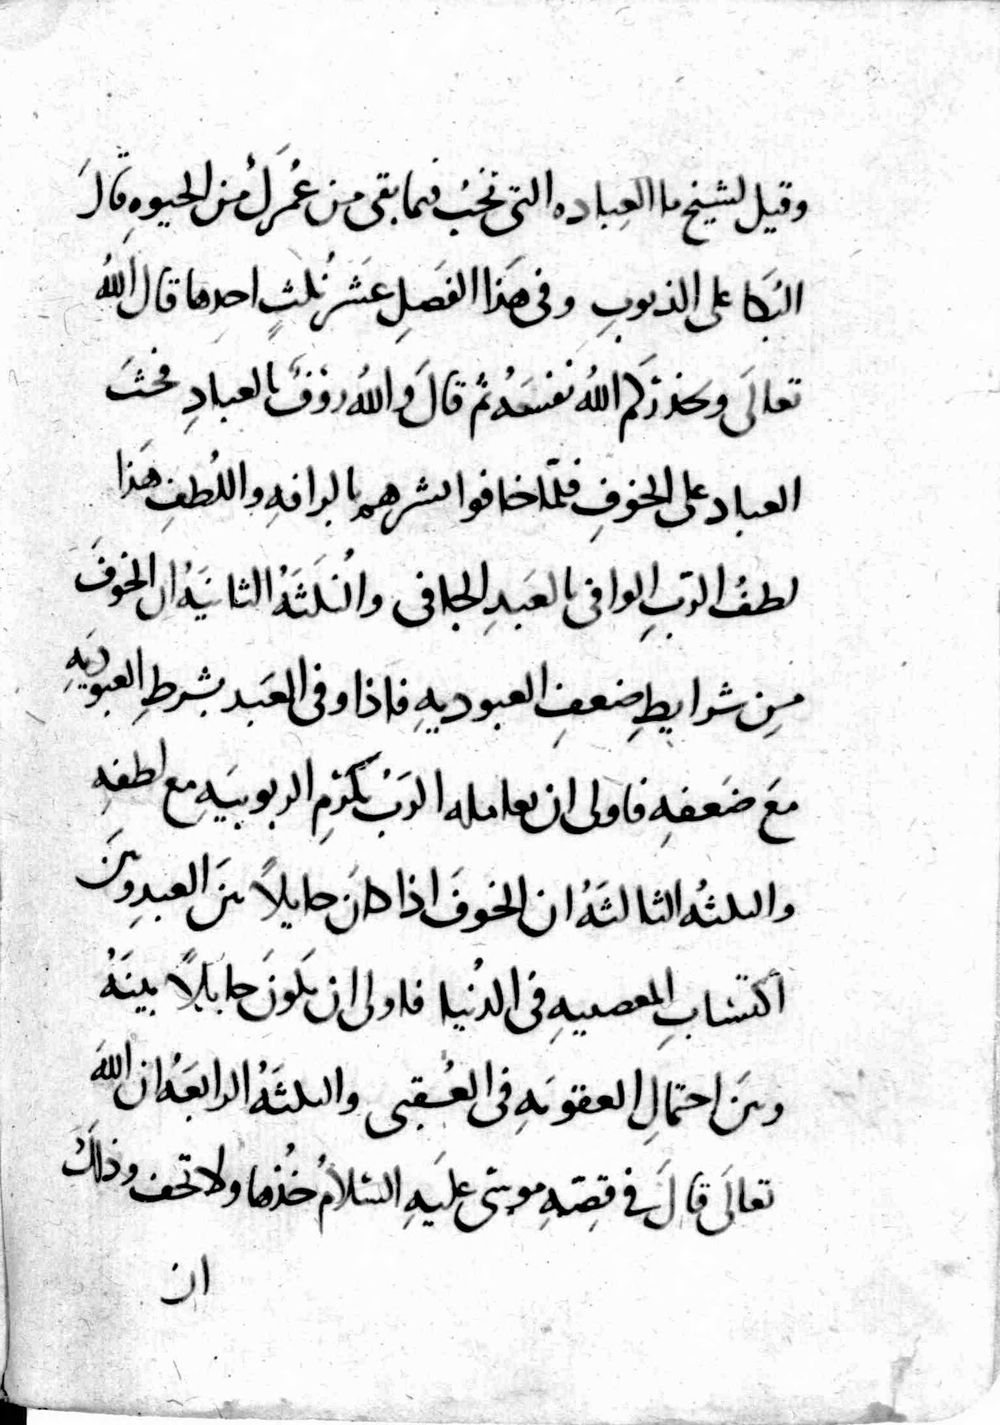 وقيل لشيخ ما العباده التى تحب فيما بقى من عُمرِكَ من الحيوهِ قالَ
البُكا على الذنوبِ وفى هَذا الفَصلِ عَشرُ ثلثٍ احدها قال اللهُ
تعالَى ويحذرُكم اللهُ نفسَهُ ثمَّ قالَ واللهُ روفٌ بالعبادِ فحثَ
العباد على الخوفِ فلمّا خافوا بشرهم بالرافهِ واللُطفِ هَذا
لطفُ الربِ الوافى بالعَبدِ الجافى والثلثَهُ الثانيَهُ ان الخوفَ
مِن شرايطِ ضعفِ العبوديهِ فاذا وفى العَبد بشرطِ العبوديَهِ
معَ ضَعفهِ فاولى ان يعامله الربُ بكَرَمِ الربوبيَهِ مع لطفهِ
والثلثهُ الثالثَهُ ان الخوفَ اذا كانَ حايلاً بينَ العبدِ وبينَ
اكتسابِ المعصيهِ فى الدُنيا فاولى ان يكونَ حايلاً بينَهُ
وبينَ احتمالِ العقوبَهِ فى العُقبى والثلثَهُ الرابعَهُ ان اللهَ
تعالَى قالَ فى قصّهِ موسَى علَيهِ السلامُ خُذها ولا تخف وذلكَ
ان